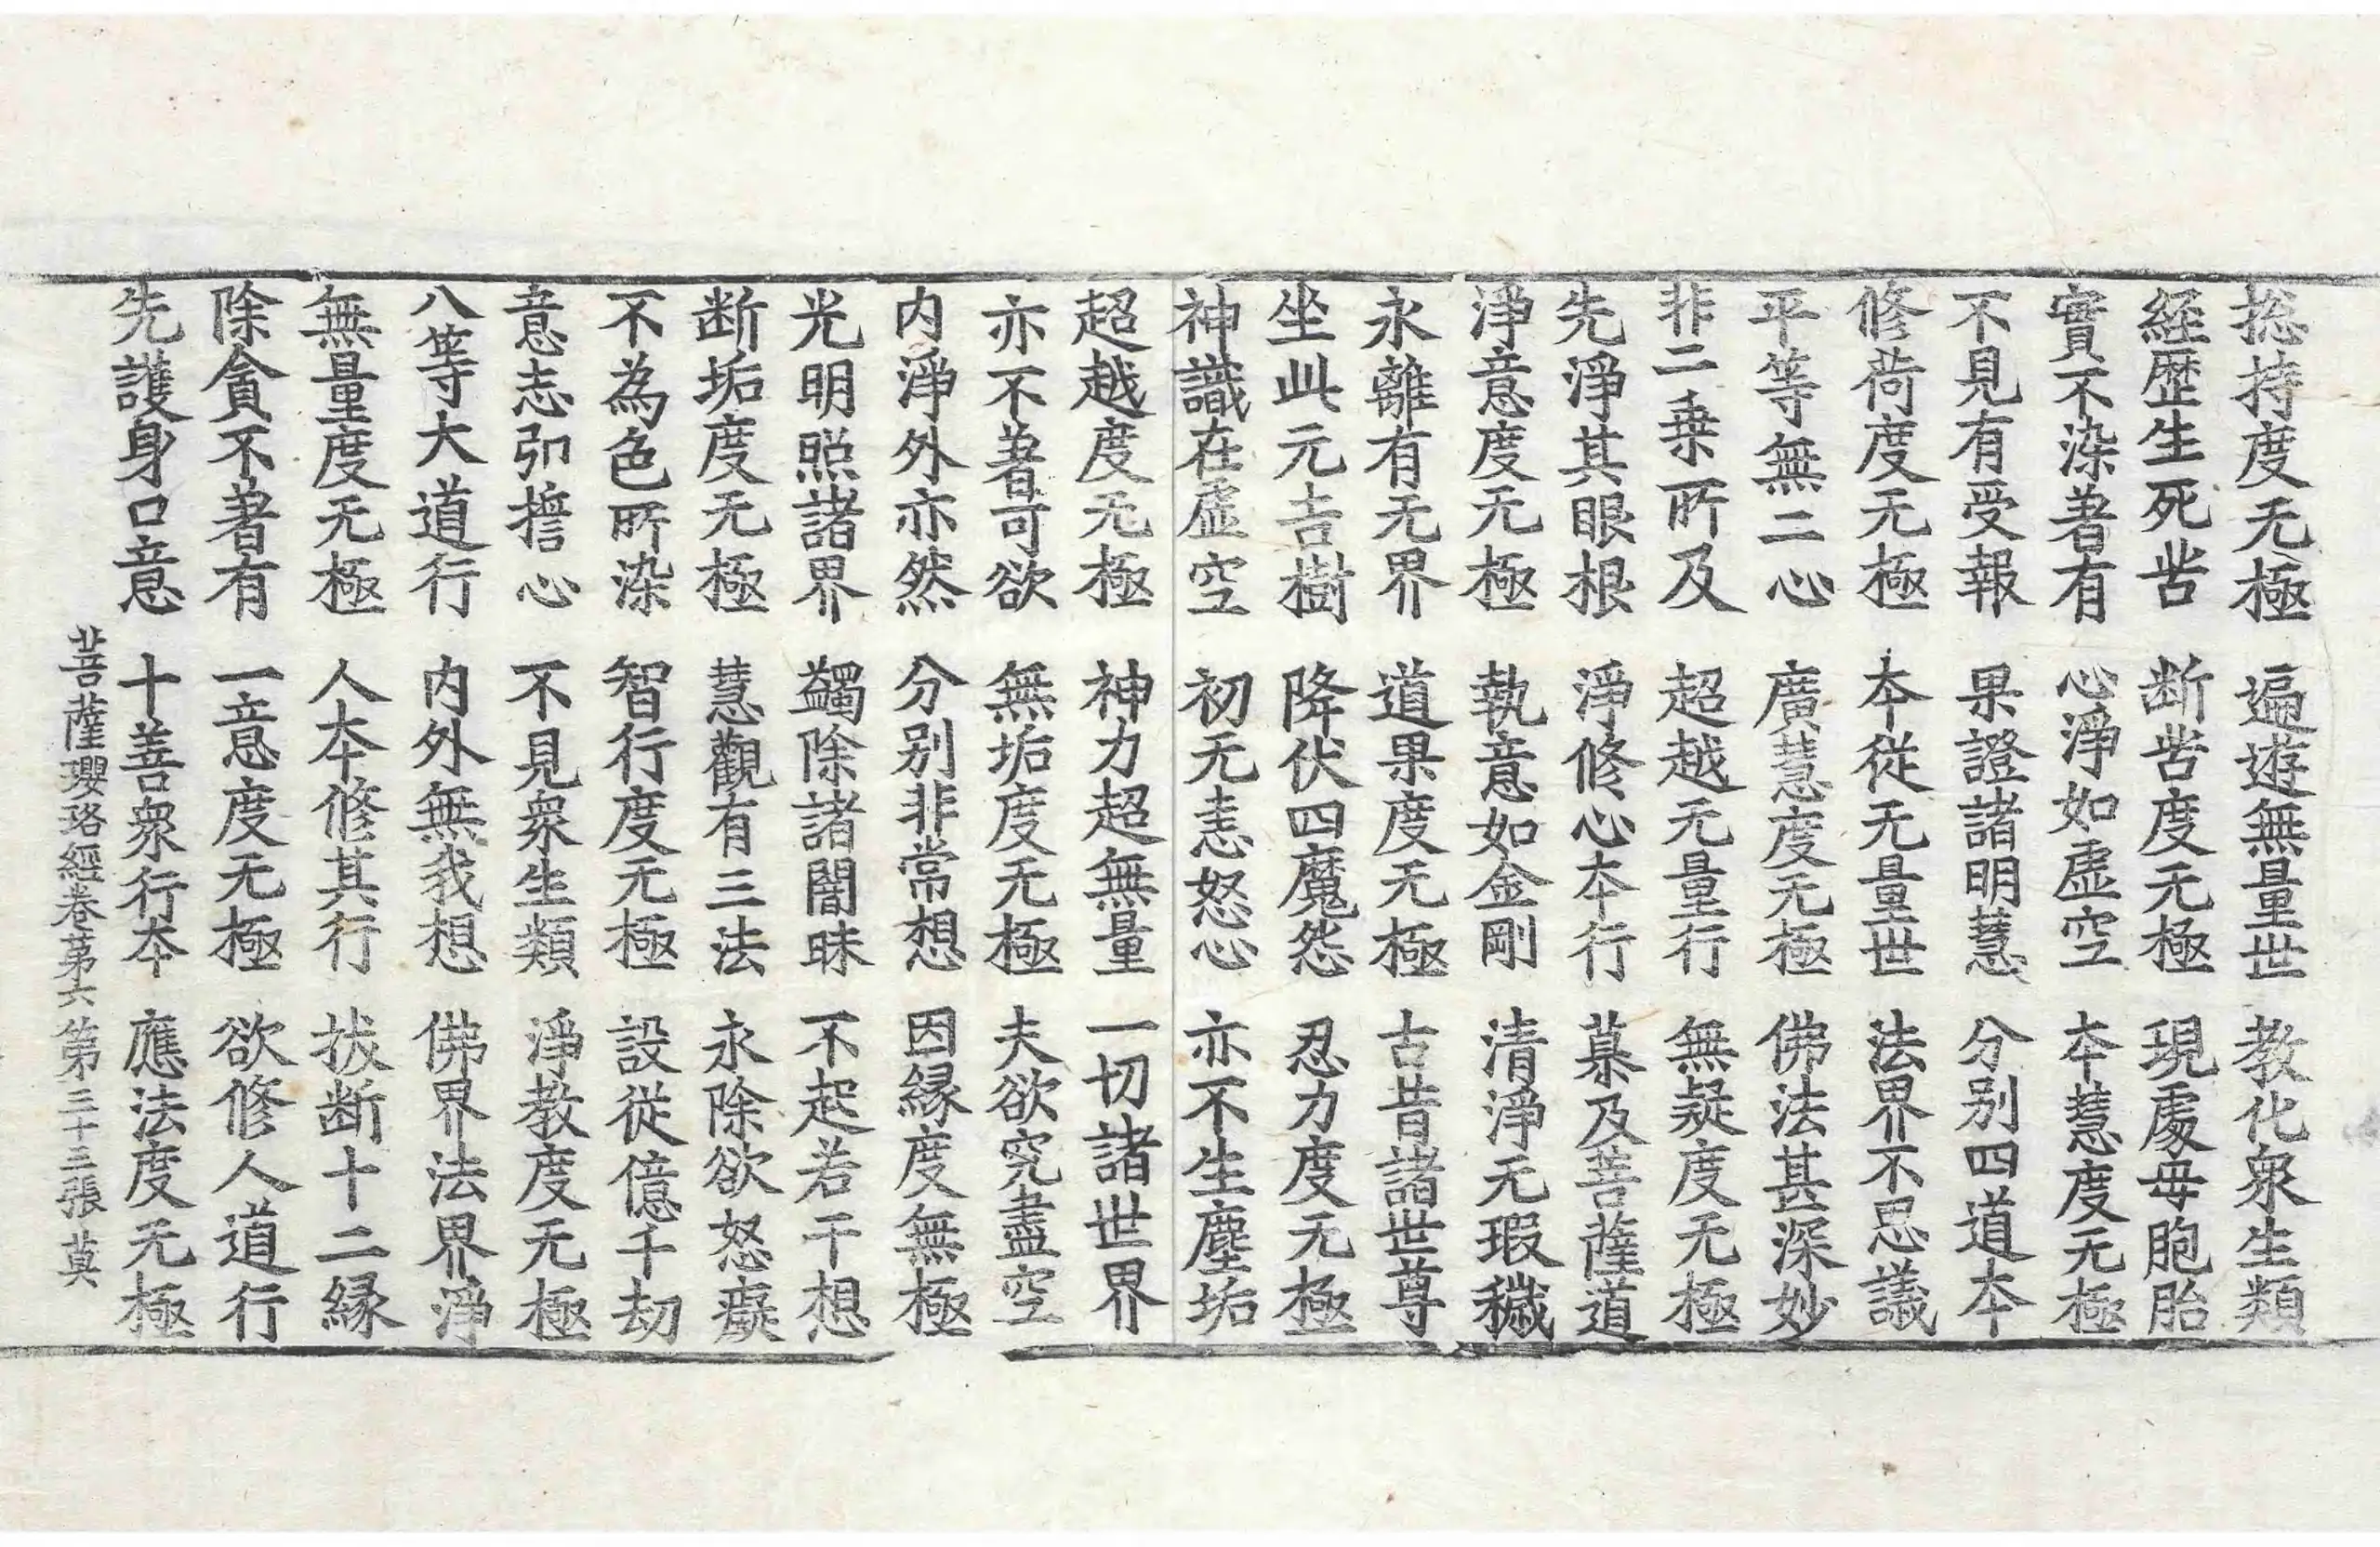 揔持度无極 遍遊無量世 教化衆生類
經歷生死苦 断苦度无極 現處毋胞胎
實不染著有 心淨如虛空 本慧度无極
不見有受報 果證諸明慧 分别四道本
修荷度无極 本從无量世 法界不思議
平等無二心 廣慧度无極 佛法甚深妙
非二乗所及 超越无量行 無疑度无極
先淨其眼根 淨修心本行 慕及菩薩道
淨意度无極 執意如金剛 清淨无瑕穢
永離有无界 道果度无極 古昔諸世尊
坐此元吉樹 降伏四魔怨 忍力度无極
神識在虛空 初无恚怒心 亦不生塵垢
超越度无極 神力超無量 一切諸世界
亦不著可欲 無垢度无極 夫欲究盡空
内淨外亦然 分别非常想 因緣度無極
光明照諸界 蠲除諸闇昧 不起若干想
断垢度无極 慧觀有三法 永除欲怒癡
不為色所染 智行度无極 設從億千劫
意志弘擔心 不見衆生類 淨教度无極
八等大道行 内外無我想 佛界法界淨
無量度无極 人本修其行 拔断十二緣
除貪不著有 一意度无極 欲修人道行
先護身口意 十善衆行本 應法度无極
菩薩瓔珞經卷第六 第三十三張 莫